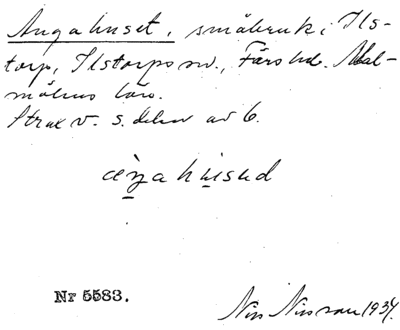 Ångahuset, småbruk i Ils-
torp, Ilstorps sn., Färs hd. Mal-
möhus län.
Strax v. s. delen av 6.
åŋahusəd
Nr 5583.
Nils Nilsson 1934.